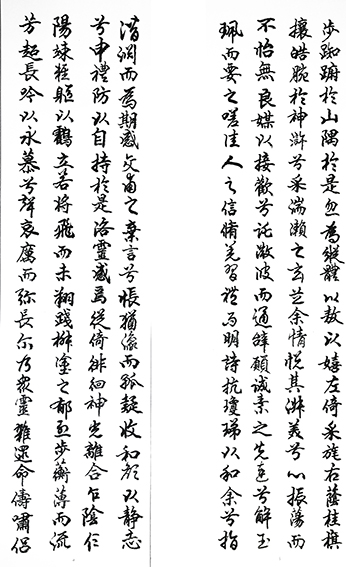 步踟躕於山隅於是忽焉縱體以敖以嬉左倚采旄右蔭桂旗
攘皓腕於神滸兮采湍瀨之玄芝余情悅其淑美兮心振蕩而
不怡無良媒以接歡兮託微波而通辭願誠素之先達兮解玉
珮而要之嗟佳人之信脩羌習禮而明詩抗瓊珶以和余兮指
潛淵而為期感交甫之棄言兮悵猶豫而狐疑收和顏以静志
兮申禮防以自持於是洛靈感焉徙倚徘徊神光離合乍陰乍
陽竦輕軀以鶴立若將飛而未翔踐椒塗之郁烈步蘅薄而流
芳超長吟以永慕兮聲哀厲而弥長尔乃衆靈雜遝命儔嘯侶